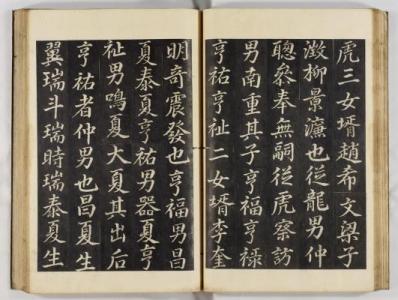 虎三女壻趙希文梁子
澂柳景濂也從龍男仲
聰叅奉無嗣從虎察訪
男南重其子亨福亨祿
亨祐亨祉二女壻李奎
明奇震發也亨福男昌
夏泰夏亨祐男器夏亨
祉男鳴夏大夏其出后
亨祐者仲男也昌夏生
翼瑞斗瑞時瑞泰夏生